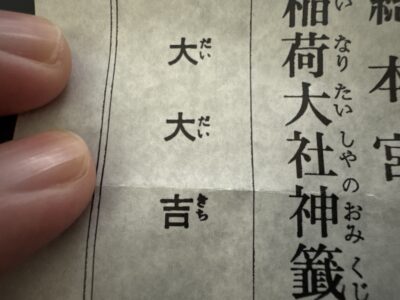 総本宮
稲荷大社神籤
いなりたいしやのおみくじ
大大吉
だいだいきち